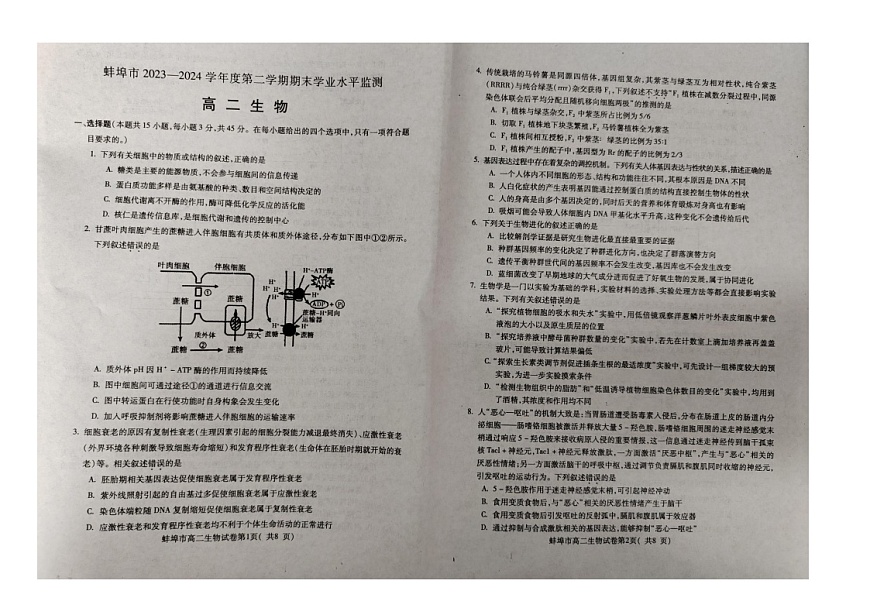 蚌埠市 2023—2024 学年度第二学期期末学业水平监测
高 二 生 物
一、选择题(本题共 15 小题,每小题 3 分,共 45 分。在每小题给出的四个选项中,只有一项符合题
目要求的。)
1. 下列有关细胞中的物质或结构的叙述,正确的是
A. 糖类是主要的能源物质,不会参与细胞间的信息传递
B. 蛋白质功能多样是由氨基酸的种类、数目和空间结构决定的
C. 细胞代谢离不开酶的作用,酶可降低化学反应的活化能
D. 核仁是遗传信息库,是细胞代谢和遗传的控制中心
2. 甘蔗叶肉细胞产生的蔗糖进入伴胞细胞有共质体和质外体途径,分布如下图中①②所示。
下列叙述错误的是
叶肉细胞 伴胞细胞
①
蔗糖 蔗糖
质外体
蔗糖 ② 蔗糖
放大
H⁺-ATP酶
ATP
H⁺
ADP + Pi
蔗糖-H⁺同向
运输器
蔗糖 蔗糖
A. 质外体 pH 因 H⁺-ATP 酶的作用而持续降低
B. 图中细胞间可通过途径①的通道进行信息交流
C. 图中转运蛋白在行使功能时自身构象会发生变化
D. 加入呼吸抑制剂将影响蔗糖进入伴胞细胞的运输速率
3. 细胞衰老的原因有复制性衰老(生理因素引起的细胞分裂能力减退最终消失)、应激性衰老
(外界环境各种刺激导致细胞寿命缩短)和发育程序性衰老(生命体在胚胎时期就开始的衰
老)等。相关叙述错误的是
A. 胚胎期相关基因表达促使细胞衰老属于发育程序性衰老
B. 紫外线照射引起的自由基过多促使细胞衰老属于应激性衰老
C. 染色体端粒随 DNA 复制缩短促使细胞衰老属于复制性衰老
D. 应激性衰老和发育程序性衰老均不利于个体生命活动的正常进行
蚌埠市高二生物试卷第1页( 共8 页)
4. 传统栽培的马铃薯是同源四倍体,基因组复杂,其紫茎与绿茎互为相对性状,纯合紫茎
(RRRR)与纯合绿茎(rrrr)杂交获得 F₁,下列叙述不支持"F₁ 植株在减数分裂过程中,同源
染色体联会后平均分配且随机移向细胞两极"的推测的是
A. F₁ 植株与绿茎杂交,F₂ 中紫茎所占比例为 5/6
B. 切取 F₁ 植株地下块茎繁殖,F₂ 马铃薯植株全为紫茎
C. F₁ 植株间相互授粉,F₂ 中紫茎: 绿茎的比例为 35:1
D. F₁ 植株产生的配子中,基因型为 Rr 的配子的比例为 2/3
5. 基因表达过程中存在着复杂的调控机制。下列有关人体基因表达与性状的关系,描述正确的是
A. 一个人体内不同细胞的形态、结构和功能往往不同,其根本原因是 DNA 不同
B. 人白化症状的产生表明基因能通过控制蛋白质的结构直接控制生物体的性状
C. 人的身高是由多个基因决定的,同时后天的营养和体育锻炼对身高也有影响
D. 吸烟可能会导致人体细胞内 DNA 甲基化水平升高,这种变化不会遗传给后代
6. 下列关于生物进化的叙述正确的是
A. 比较解剖学证据是研究生物进化最直接最重要的证据
B. 种群基因频率的变化决定了种群进化方向,也决定了群落演替方向
C. 遗传平衡种群世代间的基因频率不会发生改变,基因库也不会发生改变
D. 蓝细菌改变了早期地球的大气成分进而促进了好氧生物的发展,属于协同进化
7. 生物学是一门以实验为基础的学科,实验材料的选择、实验处理方法等都会直接影响实验
结果。下列有关叙述错误的是
A. "探究植物细胞的吸水和失水"实验中,用低倍镜观察洋葱鳞片叶外表皮细胞中紫色
液泡的大小以及原生质层的位置
B. "探究培养液中酵母菌种群数量的变化"实验中,若先在计数室上滴加培养液再盖盖
玻片,可能导致计算结果偏低
C. "探索生长素类调节剂促进插条生根的最适浓度"实验中,可先设计一组梯度较大的预
实验,为进一步实验摸索条件
D. "检测生物组织中的脂肪"和"低温诱导植物细胞染色体数目的变化"实验中,均用到
了酒精,其浓度和作用均不同
8. 人"恶心—呕吐"的机制大致是:当胃肠道遭受肠毒素入侵后,分布在肠道上皮的肠道内分
泌细胞——肠嗜铬细胞被激活并释放大量 5-羟色胺,肠嗜铬细胞周围的迷走神经感觉末
梢通过响应 5-羟色胺来接收病原入侵的重要情报,这一信息通过迷走神经传到脑干孤束
核 Tac1+神经元,Tac1+神经元释放激肽,一方面激活"厌恶中枢",产生与"恶心"相关的
厌恶性情绪;另一方面激活脑干的呼吸中枢,通过调节负责膈肌和腹肌同时收缩的神经元,
引发呕吐的运动行为。下列叙述错误的是
A. 5-羟色胺作用于迷走神经感觉末梢,可引起神经冲动
B. 食用变质食物后,与"恶心"相关的厌恶性情绪产生于脑干
C. 食用变质食物后引发呕吐的反射弧中,膈肌和腹肌属于效应器
D. 通过抑制与合成激肽相关的基因表达,能够抑制"恶心—呕吐"
蚌埠市高二生物试卷第2页( 共8 页)